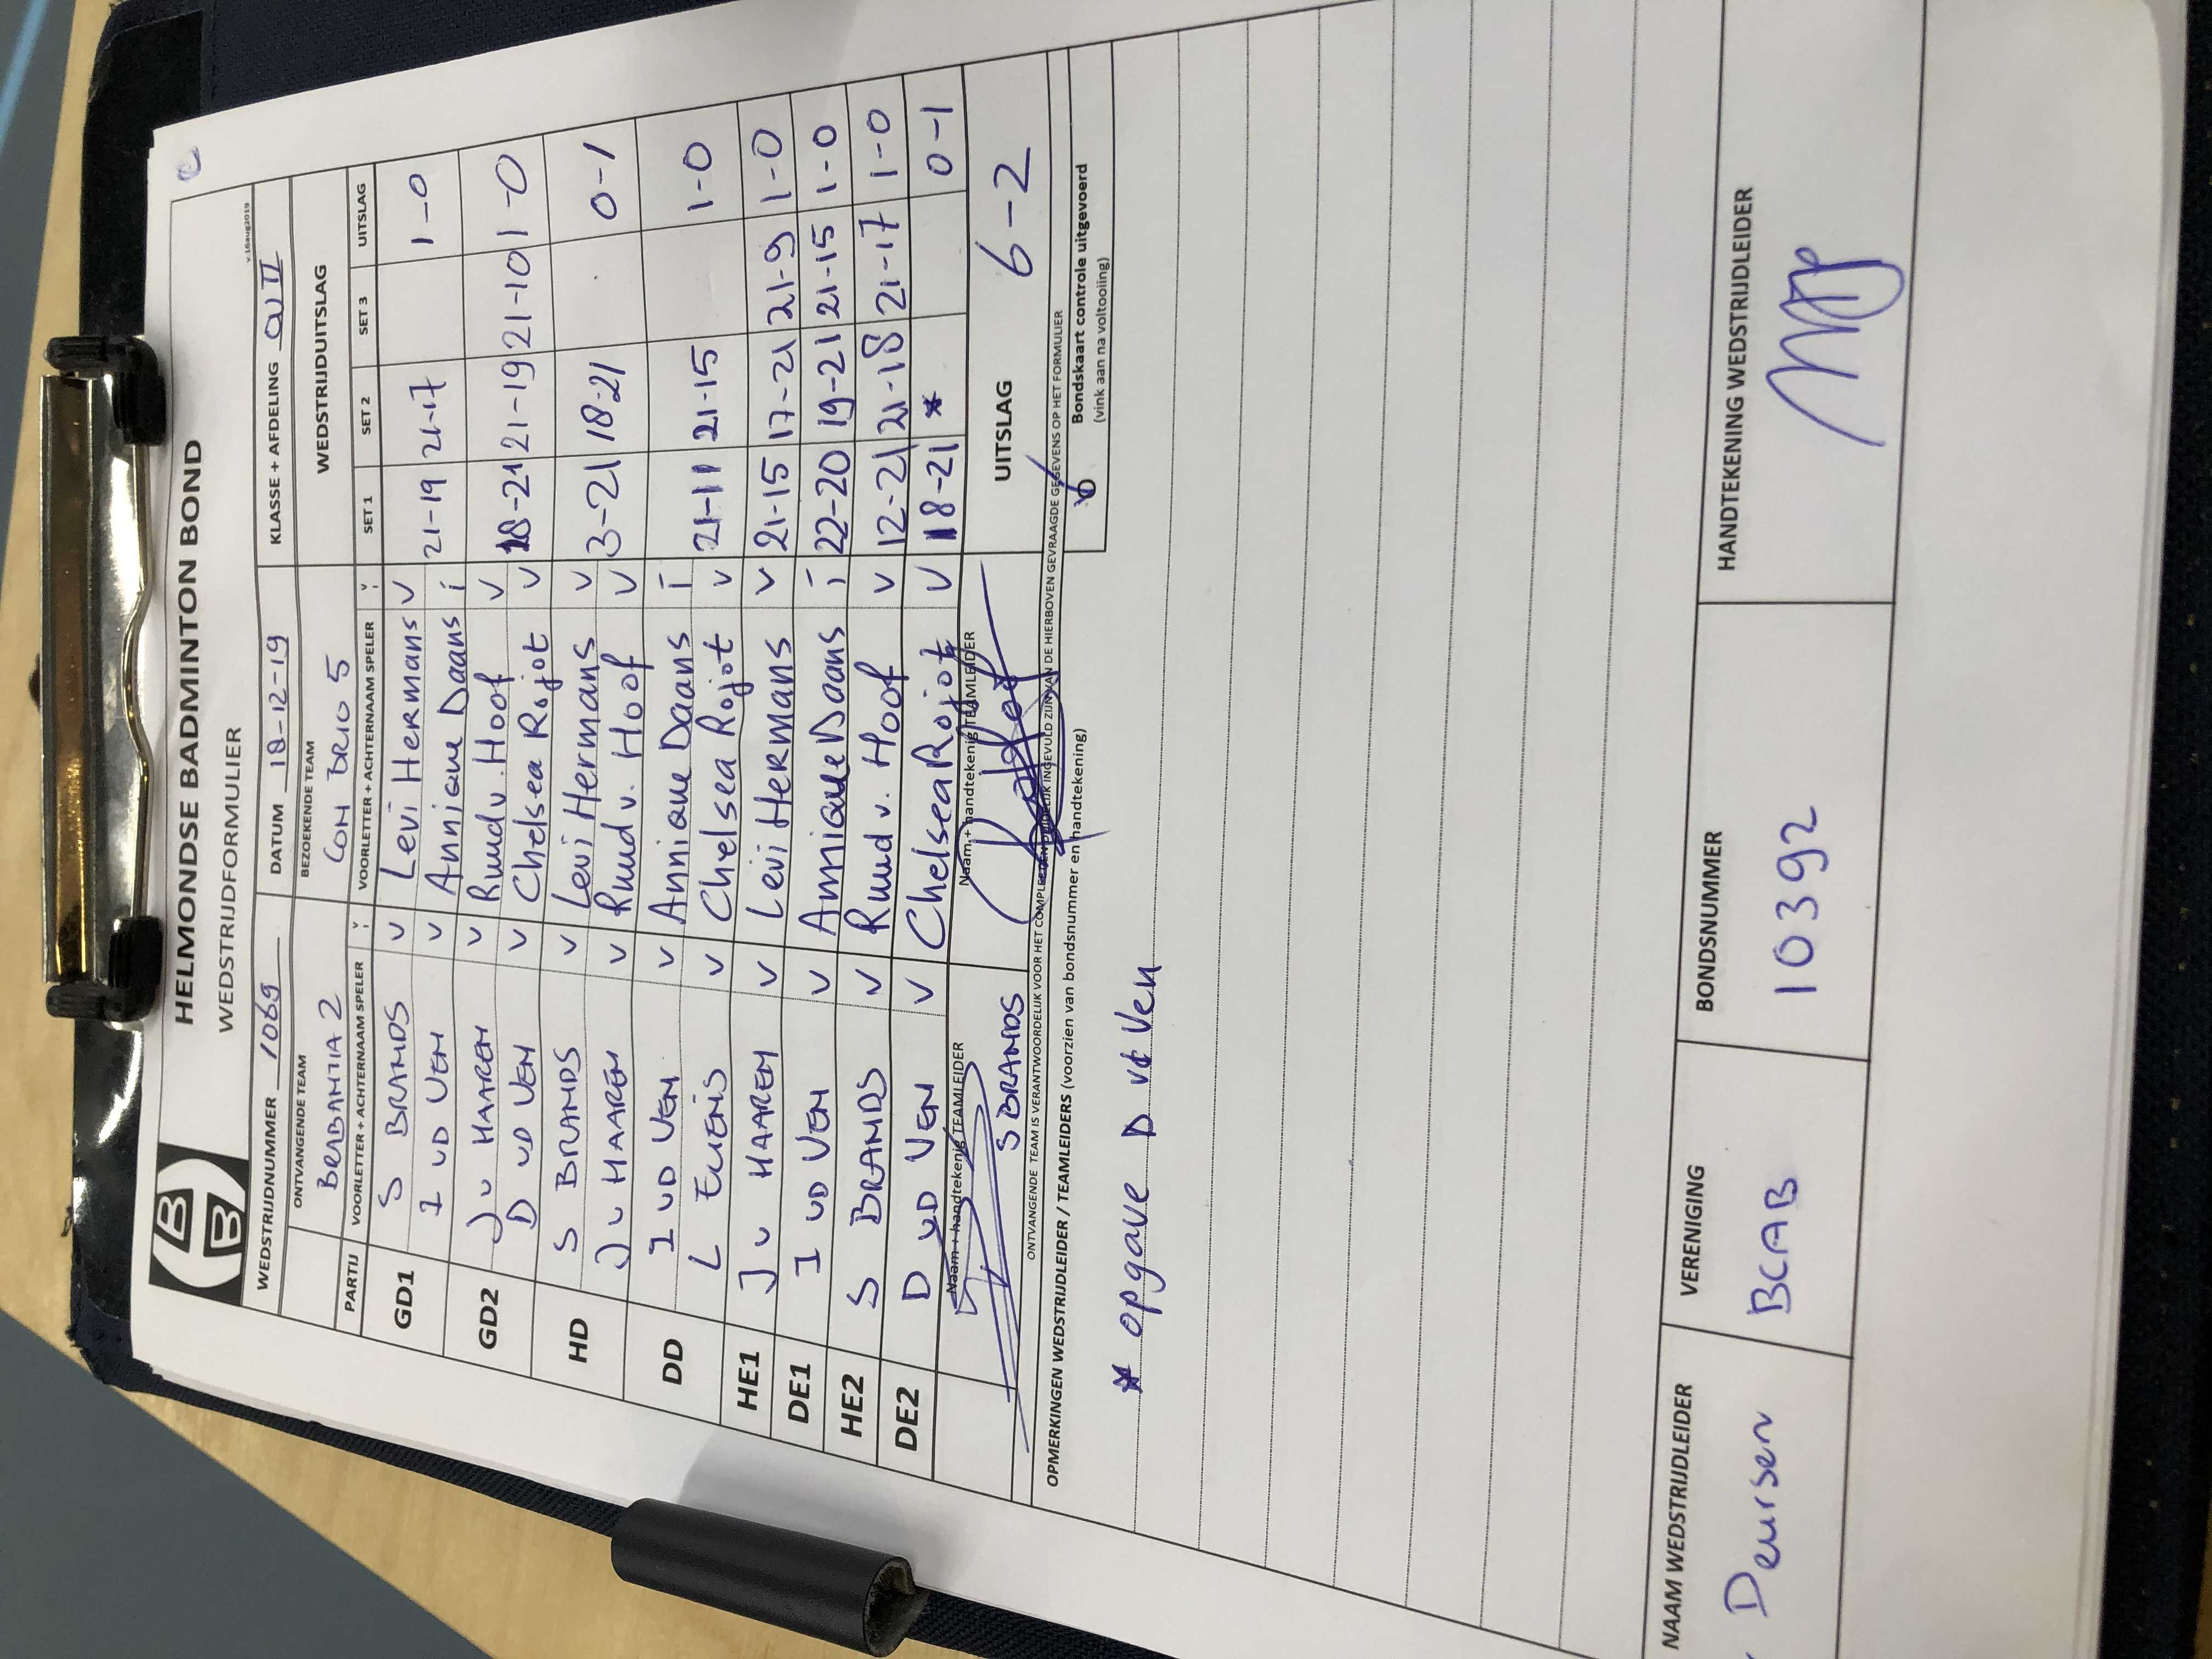 HELMONDSE BADMINTON BOND
WEDSTRIJDFORMULIER
v.16aug2019
WEDSTRIJDNUMMER 1069 DATUM 18-12-19 KLASSE + AFDELING
ONTVANGENDE TEAM BEZOEKENDE TEAM WEDSTRIJDUITSLAG
BRABANTIA 2 CON BRIO 5
PARTIJ VOORLETTER + ACHTERNAAM SPELER V/I VOORLETTER + ACHTERNAAM SPELER V/I SET 1 SET 2 SET 3 UITSLAG
GD1 S BRANDS V Levi Hermans V 21-19 21-17 1-0
I VD VEN V Annique Daans i
GD2 J V HAAREN V Ruud v. Hoof V 18-21 21-19 21-10 1-0
D VD VEN V Chelsea Rojot V
HD S BRANDS V Levi Hermans V 3-21 18-21 0-1
J V HAAREN V Ruud v. Hoof V
DD I VD VEN V Annique Daans I 21-11 21-15 1-0
L V Chelsea Rojot V
HE1 J V HAAREN V Levi Hermans V 21-15 17-21 21-9 1-0
DE1 I VD VEN V Annique Daans i 22-20 19-21 21-15 1-0
HE2 S BRANDS V Ruud v. Hoof V 12-21 21-18 21-17 1-0
DE2 D VD VEN V Chelsea Rojot V 18-21 * 0-1
Naam + handtekenig TEAMLEIDER Naam + handtekenig TEAMLEIDER UITSLAG 6-2
S BRANDS
ONTVANGENDE TEAM IS VERANTWOORDELIJK VOOR HET COMPLEET EN DUIDELIJK INGEVULD ZIJN VAN DE HIERBOVEN GEVRAAGDE GEGEVENS OP HET FORMULIER
OPMERKINGEN WEDSTRIJDLEIDER / TEAMLEIDERS (voorzien van bondsnummer en handtekening)
Bondskaart controle uitgevoerd
(vink aan na voltooiing)
* opgave D vd Ven
NAAM WEDSTRIJDLEIDER VERENIGING BONDSNUMMER HANDTEKENING WEDSTRIJDLEIDER
Deursen BCAB 10392